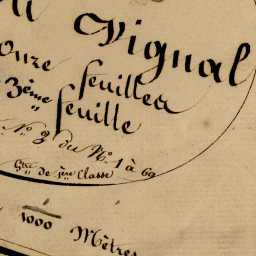 Vignal
Onze feuilles
3ème feuille
Nº 9 du Nº 1 à 69
de 1ère Classe
1000 Mètres